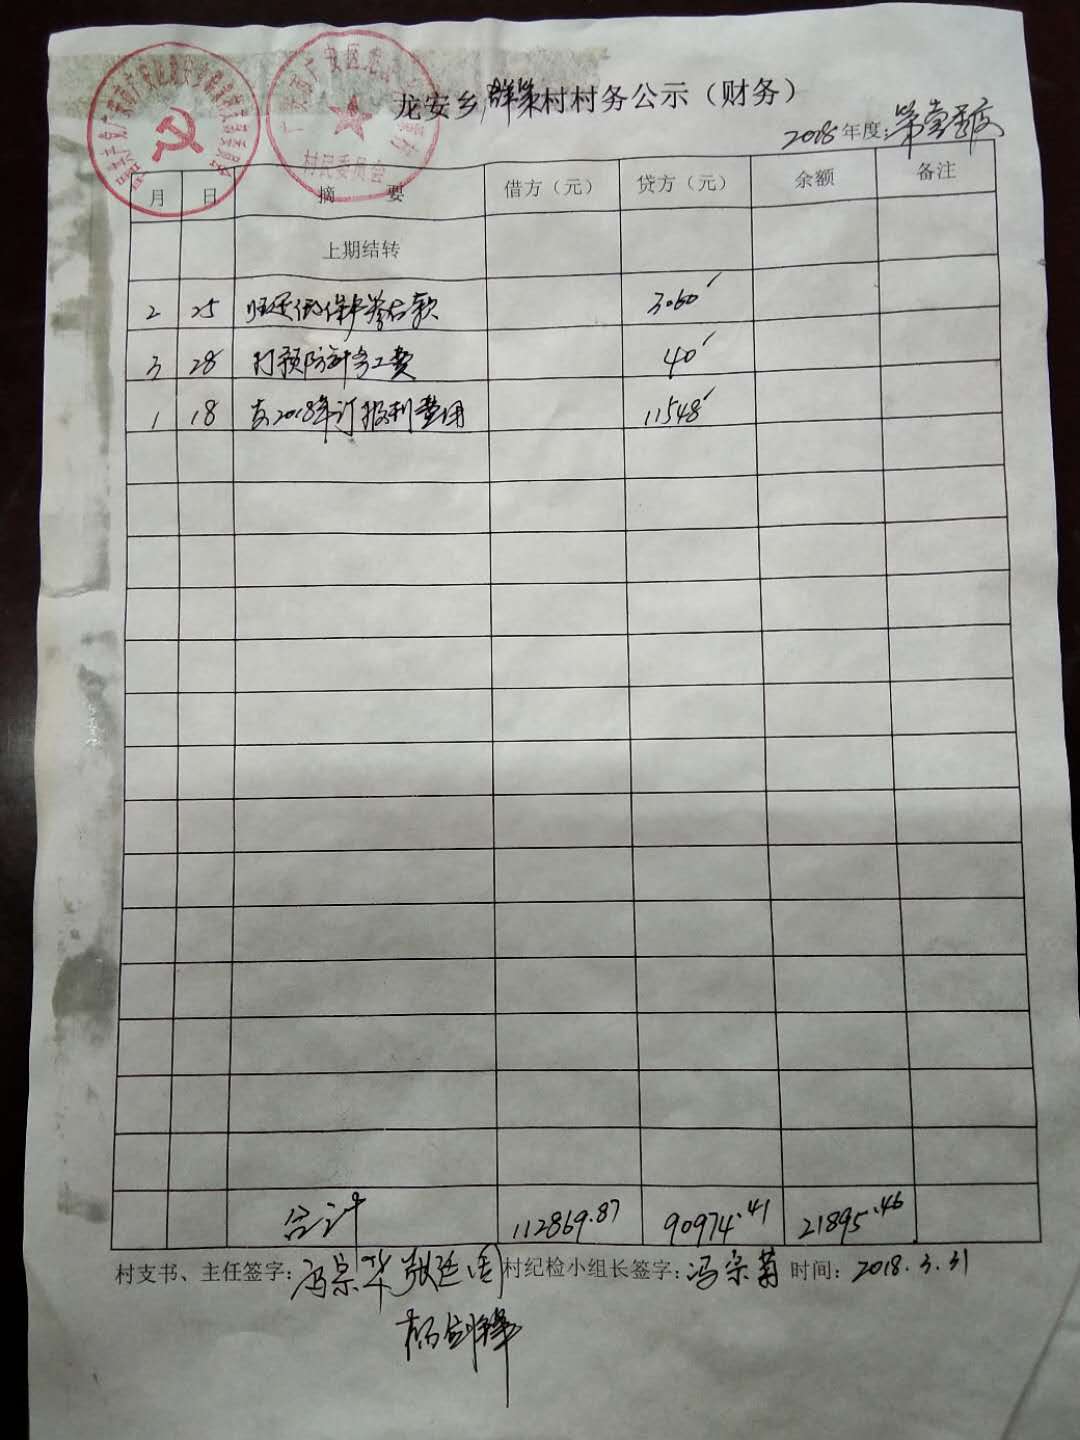 龙安乡群策村村务公示（财务）
2018年度：第壹季度
月 日 摘 要 借方（元） 贷方（元） 余额 备注
上期结转
2 25 低保户 款 3060
3 28 打预防针务工费 40
1 18 支2018年订报刊费用 11548
合计 112869.87 90974.41 21895.46
村支书、主任签字：冯宗华 村纪检小组长签字：冯宗菊 时间：2018.3.31
杨剑锋
村民委员会